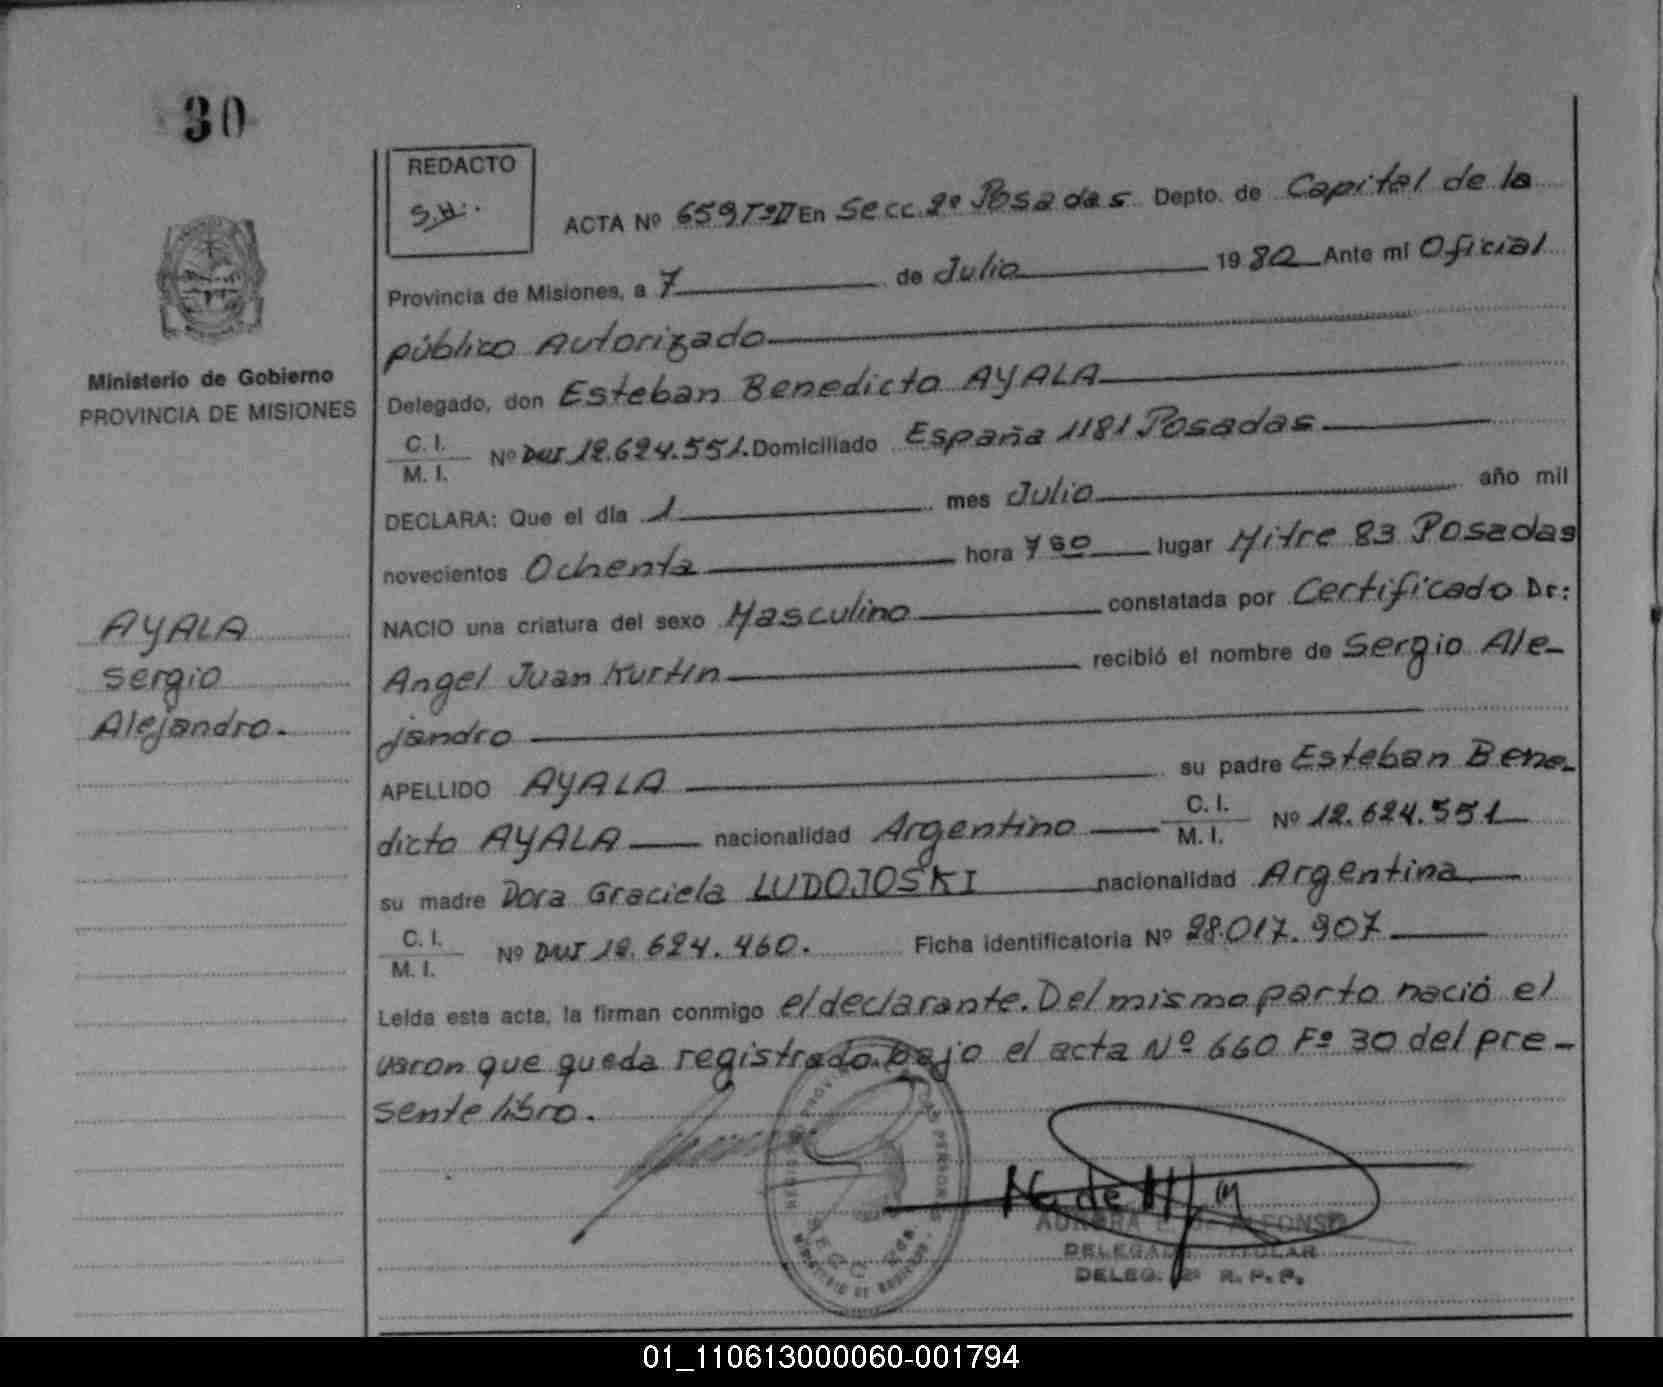 30
REDACTO
S.H.
ACTA Nº 659 Tº II En Secc. 2º Posadas Depto. de Capital de la
Provincia de Misiones, a 7 de Julio 1980 Ante mi Oficial
público Autorizado
Ministerio de Gobierno
PROVINCIA DE MISIONES
Delegado, don Esteban Benedicto AYALA
C. I.
M. I.
Nº DNI 12.624.551. Domiciliado España 1181 Posadas
DECLARA: Que el día 1 mes Julio año mil
novecientos Ochenta hora lugar Mitre 83 Posadas
AYALA
Sergio
Alejandro.
NACIO una criatura del sexo Masculino constatada por Certificado Dr:
Angel Juan Kurtin recibió el nombre de Sergio Ale-
jandro
APELLIDO AYALA su padre Esteban Bene-
dicto AYALA nacionalidad Argentino C. I. M. I. Nº 12.624.551
su madre Dora Graciela LUDOJOSKI nacionalidad Argentina
C. I.
M. I.
Nº DNI 12.624.460. Ficha identificatoria Nº 28.017.907
Leída esta acta, la firman conmigo el declarante. Del mismo parto nació el
varon que queda registrado bajo el acta Nº 660 Fº 30 del pre-
sente libro.
ALFONSO
DELEGADA TITULAR
DELEG. 2º R. P. P.
01_110613000060-001794